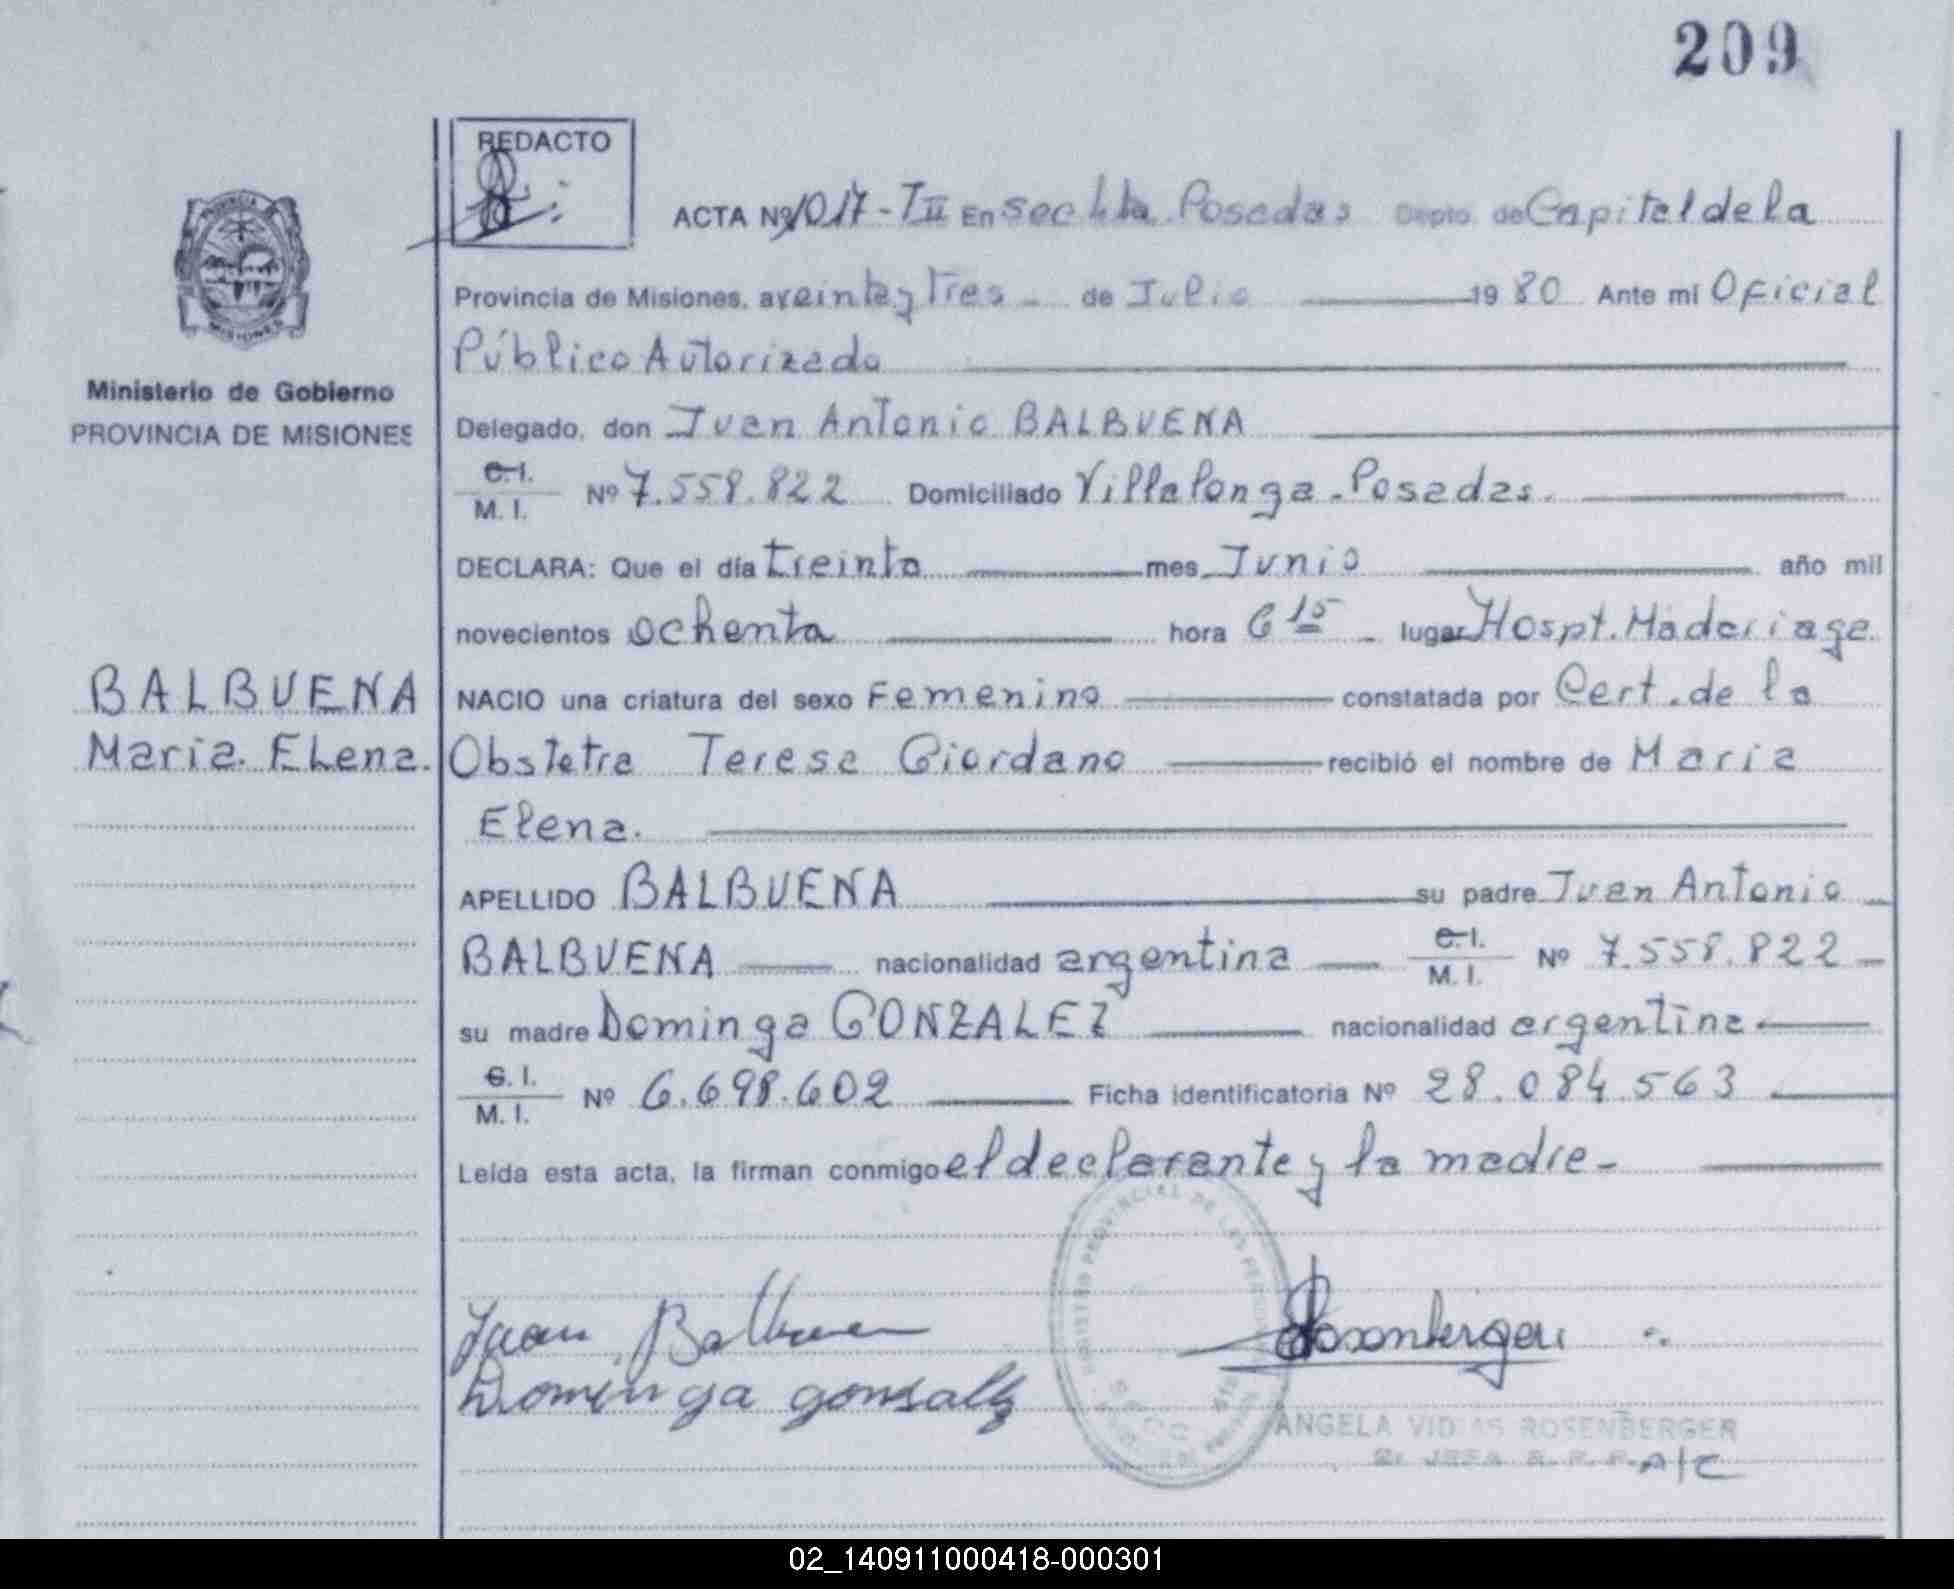 209
REDACTO
ACTA Nº 1017 - T II En Secc 4ta Posadas Depto. de Capital de la
PROVINCIA
MISIONES
Provincia de Misiones, a veinte y Tres - de Julio 19 80 Ante mí Oficial
Público Autorizado
Ministerio de Gobierno
PROVINCIA DE MISIONES
Delegado, don Juan Antonio BALBUENA
C. I.
M. I.
Nº 7.558.822 Domiciliado Villalonga - Posadas.
DECLARA: Que el día treinta mes Junio año mil
novecientos ochenta hora 6 15 lugar Hospt. Madariaga
BALBUENA
Maria. Elena.
NACIO una criatura del sexo Femenino constatada por Cert. de la
Obstetra Teresa Giordano recibió el nombre de Maria
Elena.
APELLIDO BALBUENA su padre Juan Antonio
BALBUENA nacionalidad argentina C. I. M. I. Nº 7.558.822
su madre Dominga GONZALEZ nacionalidad argentina
C. I.
M. I.
Nº 6.698.602 Ficha identificatoria Nº 28.084.563
Leída esta acta, la firman conmigo el declarante y la madre -
REGISTRO PROVINCIAL DE LAS PERSONAS
Juan Balbuena
Rosenberger
Dominga gonsalz
ANGELA VIDAS ROSENBERGER
A/C
02_140911000418-000301